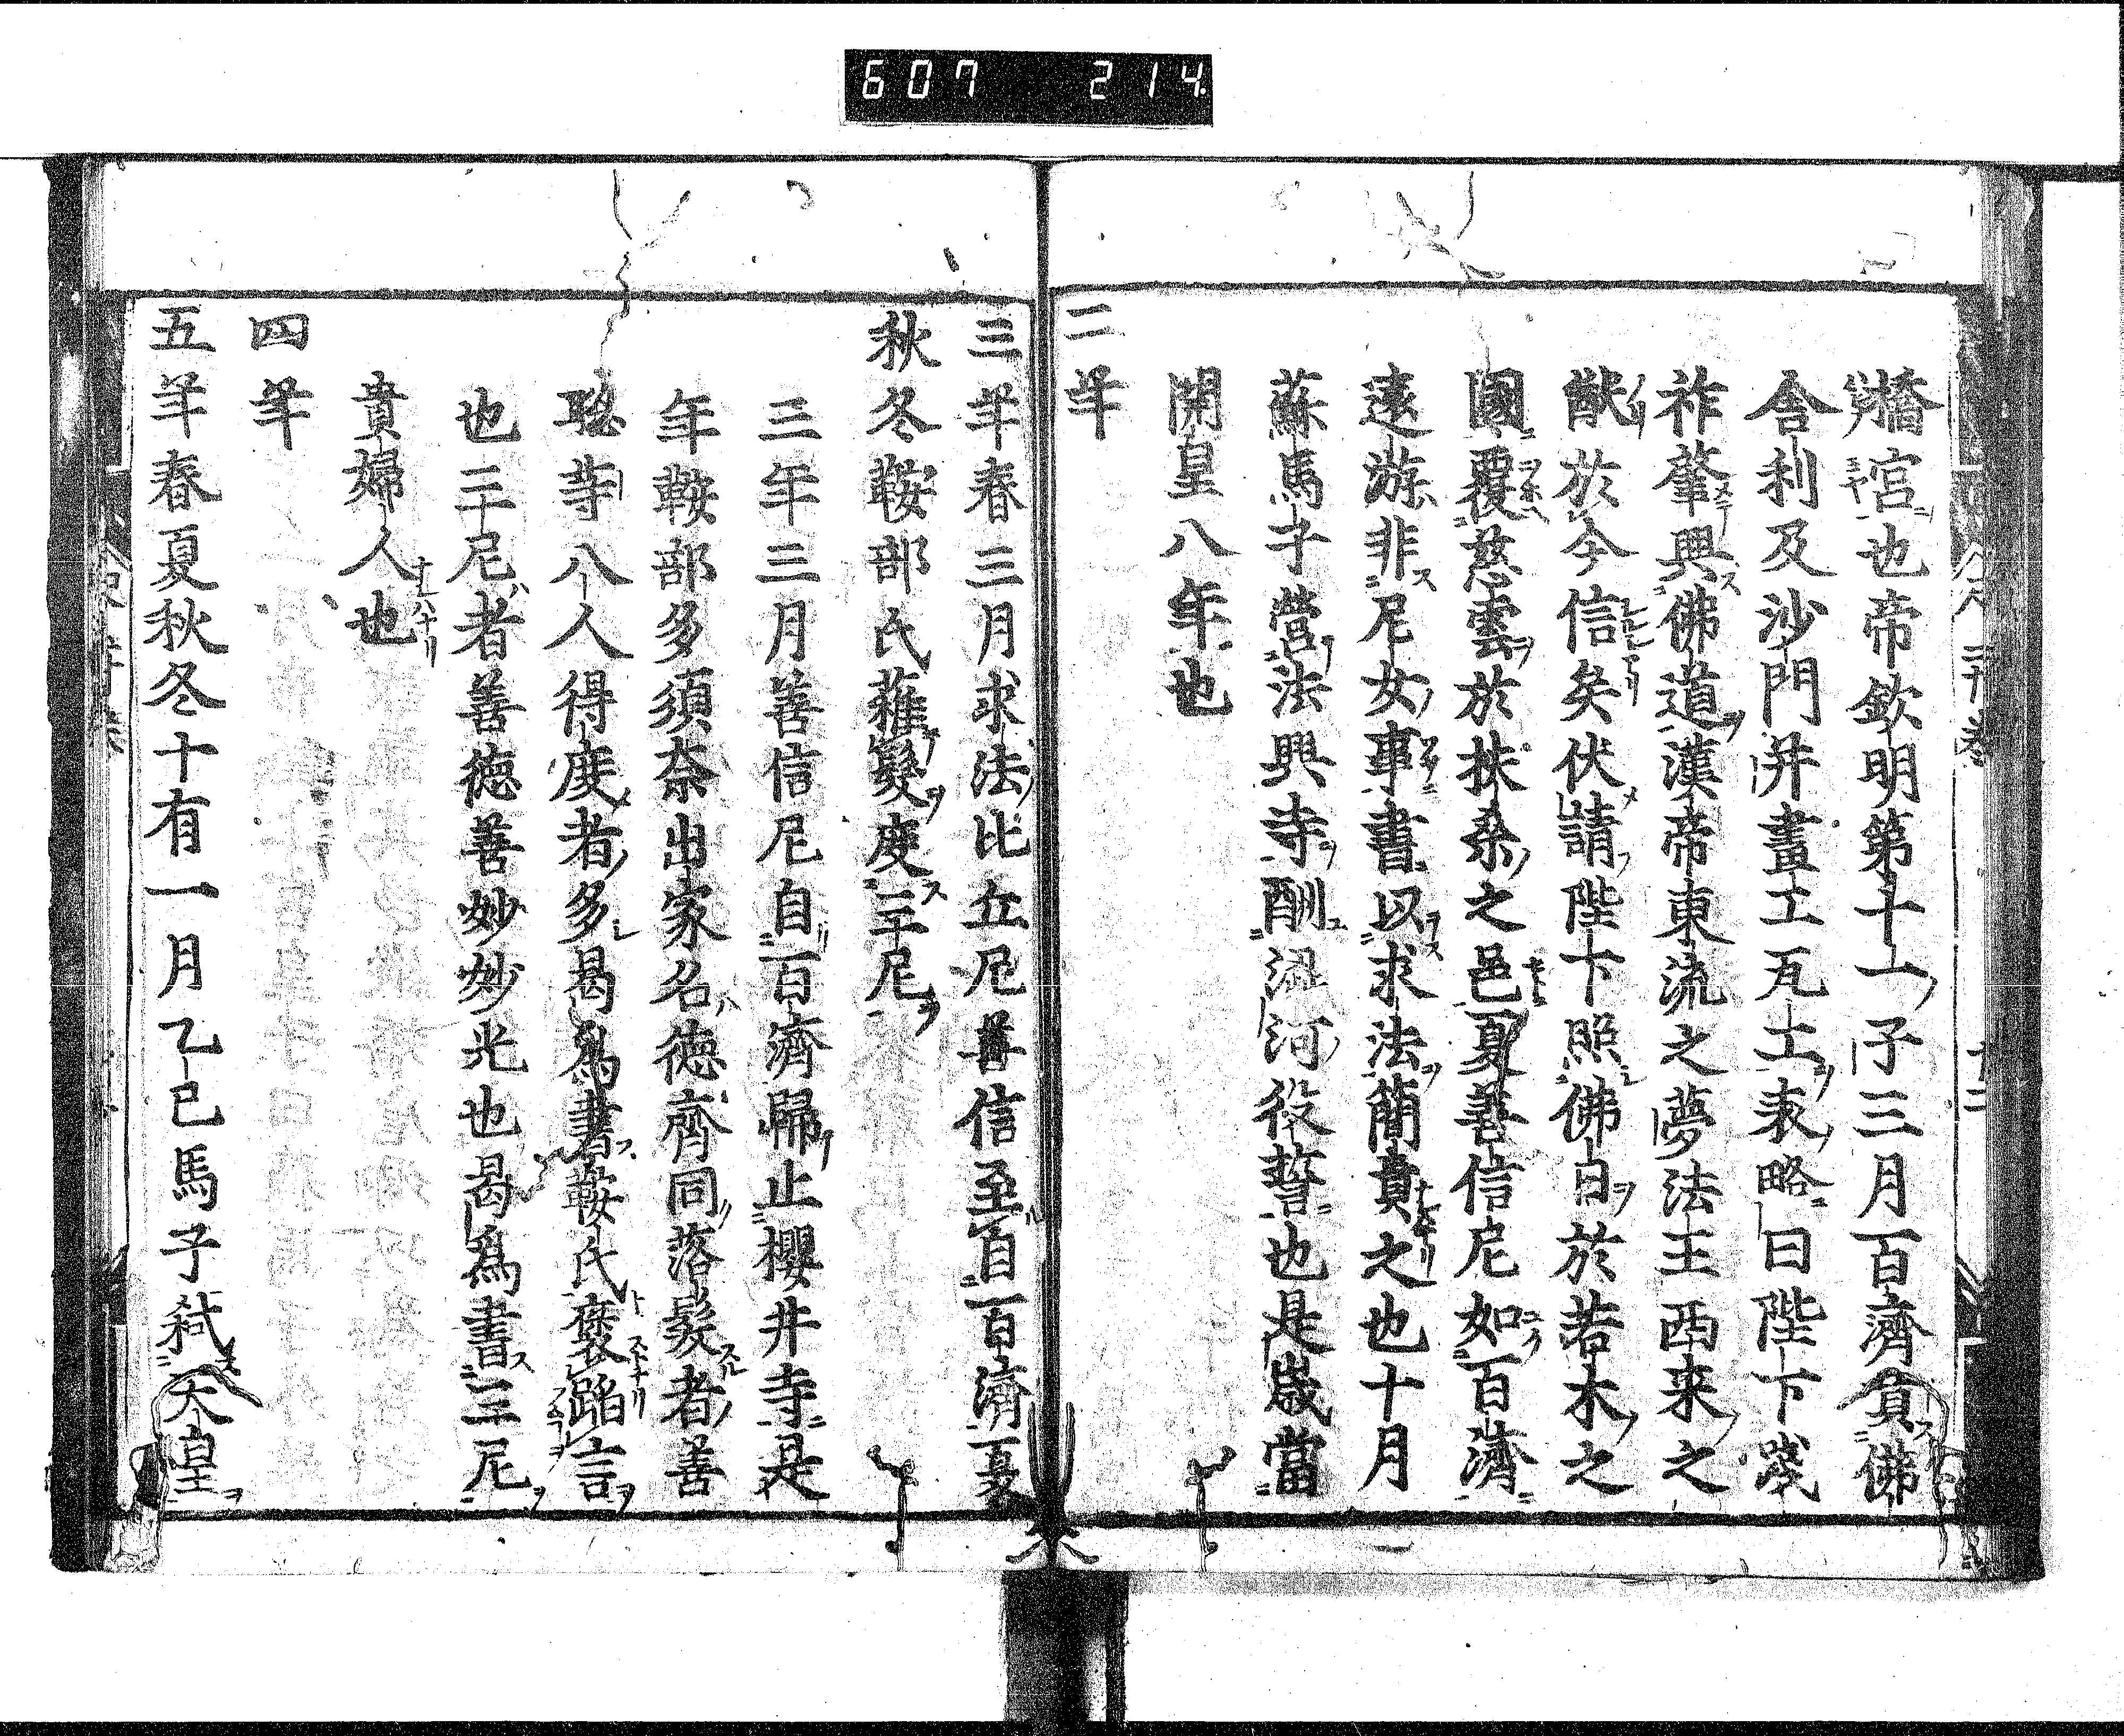 607 214
橋宮也帝欽明第十一子三月百濟貢佛
舎利及沙門并畫工瓦工表略曰陛下踐
祚肇興佛道漢帝東流之夢法王西来之
猷於今信矣伏請陛下照佛日於若木之
國覆慈雲於扶桑之邑夏善信尼如百濟
遠游非尼女事書以求法簡賁之也十月
蘇馬子營法興寺酬澀河役誓也是歳當
開皇八年也
二年
三年春三月求法比丘尼善信至自百濟夏
秋冬鞍部氏薙髮度三尼
三年三月善信尼自百濟歸止櫻井寺是
年鞍部多須奈出家名徳齊同落髮者善
聡等八人得度者多曷爲書鞍氏褒蹈言
也三尼者善徳善妙妙光也曷爲書三尼
貴婦人也
四年
五年春夏秋冬十有一月乙巳馬子弑天皇